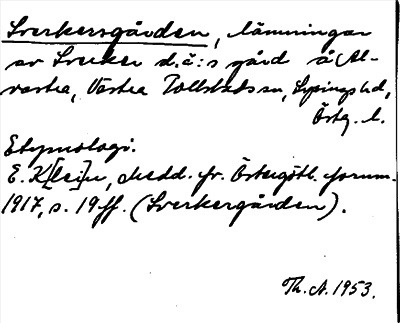 Sverkersgården, lämningar
av Sverker d.ä:s gård å Al-
vastra, Västra Tollstads sn, Lysings hd,
Östg. l.
Etymologi.
E. K[lei]n, Medd. fr. Östergötl. fornm.
1917, s. 19 ff. (Sverkergården).
Th. A. 1953.